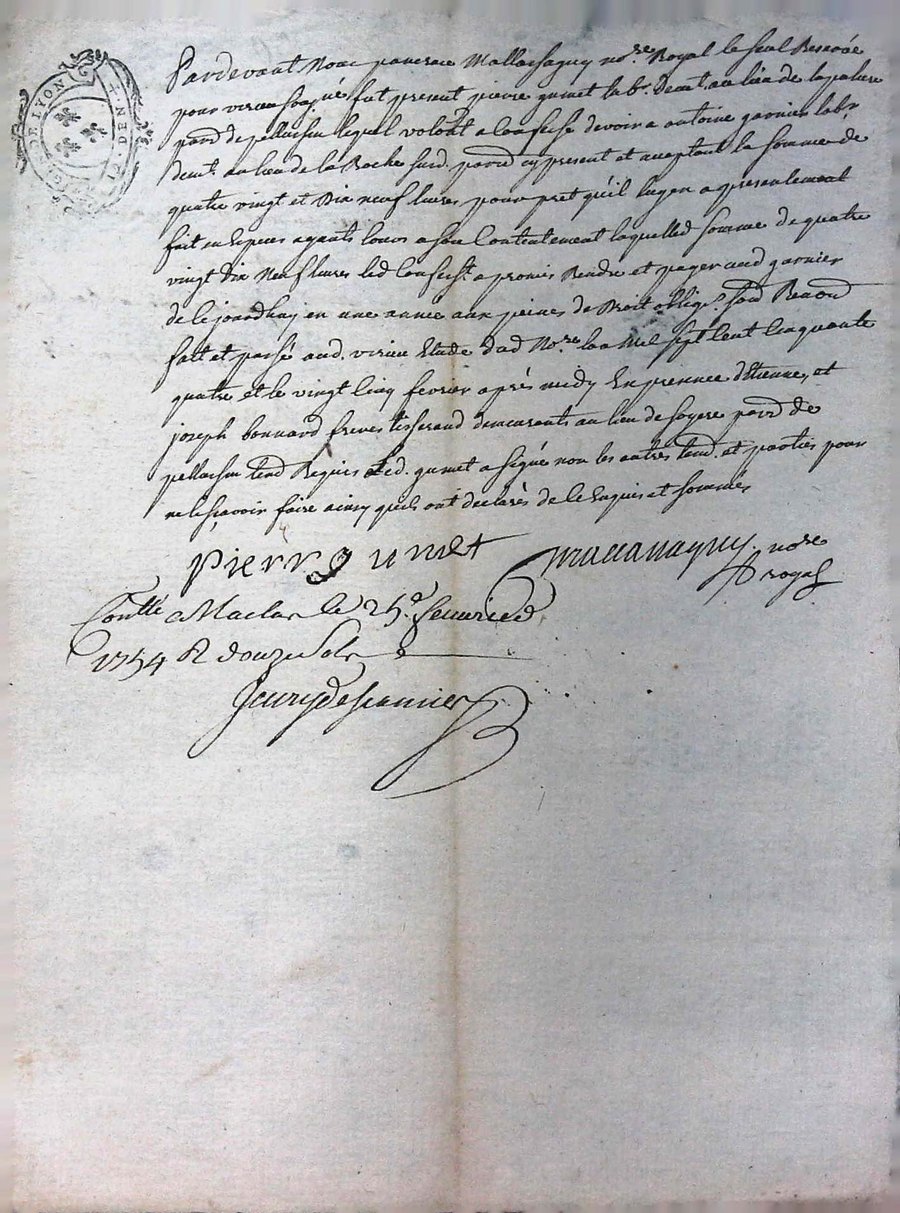 GEN. DE LYON
Pardevant Nous pancrace Mallassagny no.re Royal le seul Reservé
pour virieu soussigné fut present pierre gumet labr. demt. au lieu de la palure
parr de pellussin lequel volontt a Confessé devoir a antoine garnier labr
demt. au lieu de la Roche surd. parr cy present et aceptant la somme de
quatre vingt et Dix neuf livres pour pret qu'il luy en a presentement
fait en Especes ayants Cours a son Contentement laquelled somme de quatre
vingt Dix Neuf livres led Confesst. a promis Rendre et payer aud garnier
de Ce jourdhuy en une année aux peines de Droit oblige. soud Renond
fait et passé aud. virieu Etude dud No.re lan Mil sept Cent Cinquante
quatre et le vingt Cinq fevrier après midy En presence d'Etienne et
joseph bonnard freres tisserand demeurants au lieu de soyere parr de
pellussin temd Requis Led. gumet a signé non les autres temd. et parties pour
ne le sçavoir faire ainsy quils ont declarés de Ce Enquis et sommés
Pierr gumet
Mallassagny no.re
royal
Contlé a Maclas le 25e. fevrier
1754 R douze sols